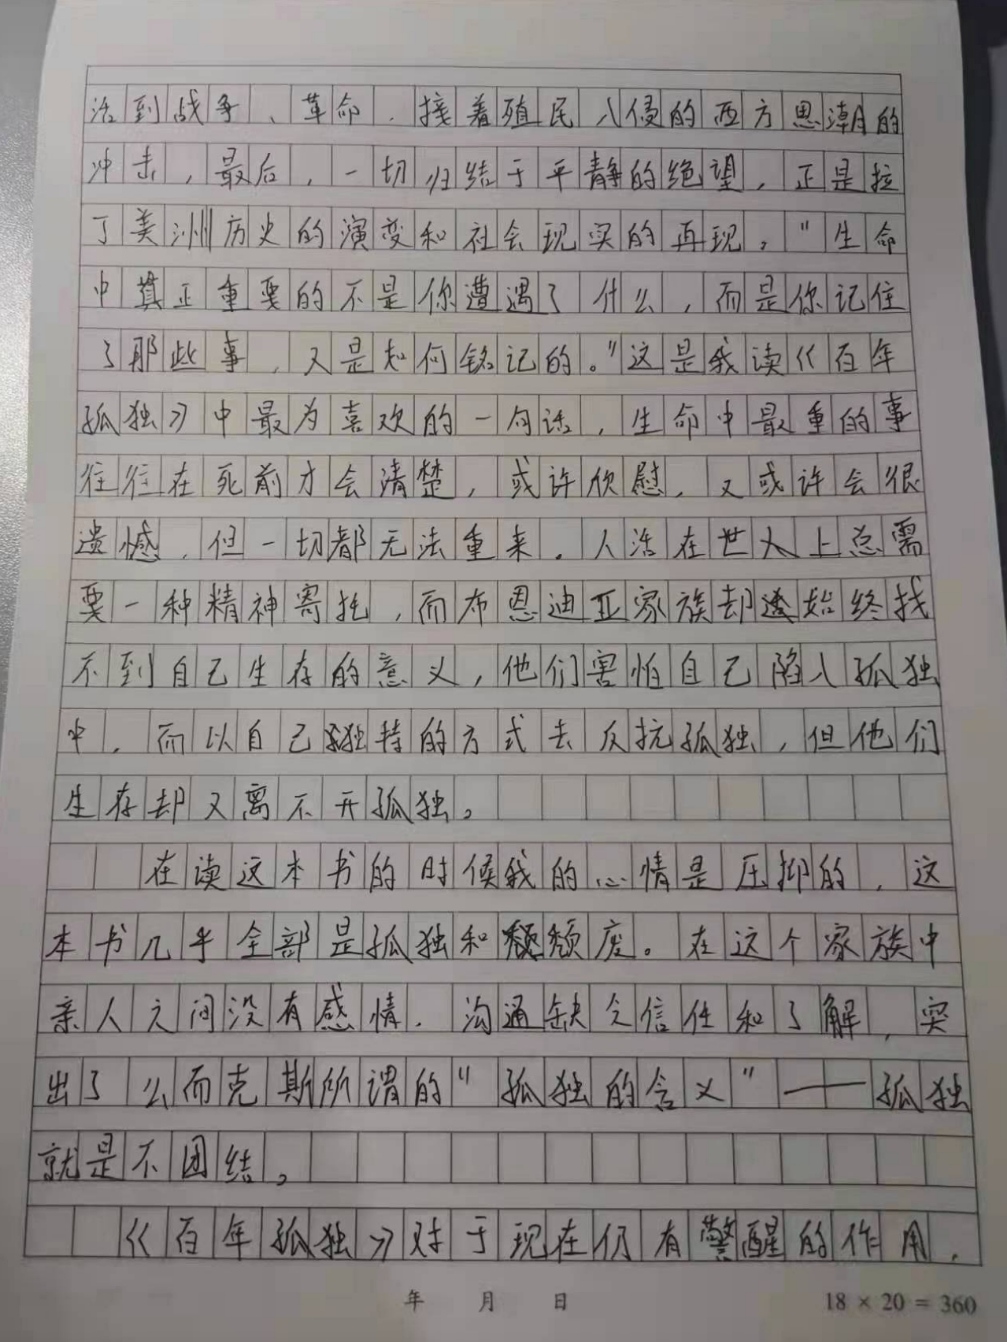 活到战争、革命，接着殖民入侵的西方思潮的
冲击，最后，一切归结于平静的绝望，正是拉
丁美洲历史的演变和社会现实的再现。“生命
中真正重要的不是你遭遇了什么，而是你记住
了那些事，又是如何铭记的。”这是我读《百年
孤独》中最为喜欢的一句话，生命中最重的事
往往在死前才会清楚，或许欣慰，又或许会很
遗憾，但一切都无法重来。人活在世上总需
要一种精神寄托，而布恩迪亚家族却始终找
不到自己生存的意义，他们害怕自己陷入孤独
中，而以自己独特的方式去反抗孤独，但他们
生存却又离不开孤独。
在读这本书的时候我的心情是压抑的，这
本书几乎全部是孤独和颓废。在这个家族中
亲人之间没有感情，沟通缺乏信任和了解，突
出了么而克斯所谓的“孤独的含义”——孤独
就是不团结。
《百年孤独》对于现在仍有警醒的作用，
年 月 日
18 × 20 = 360